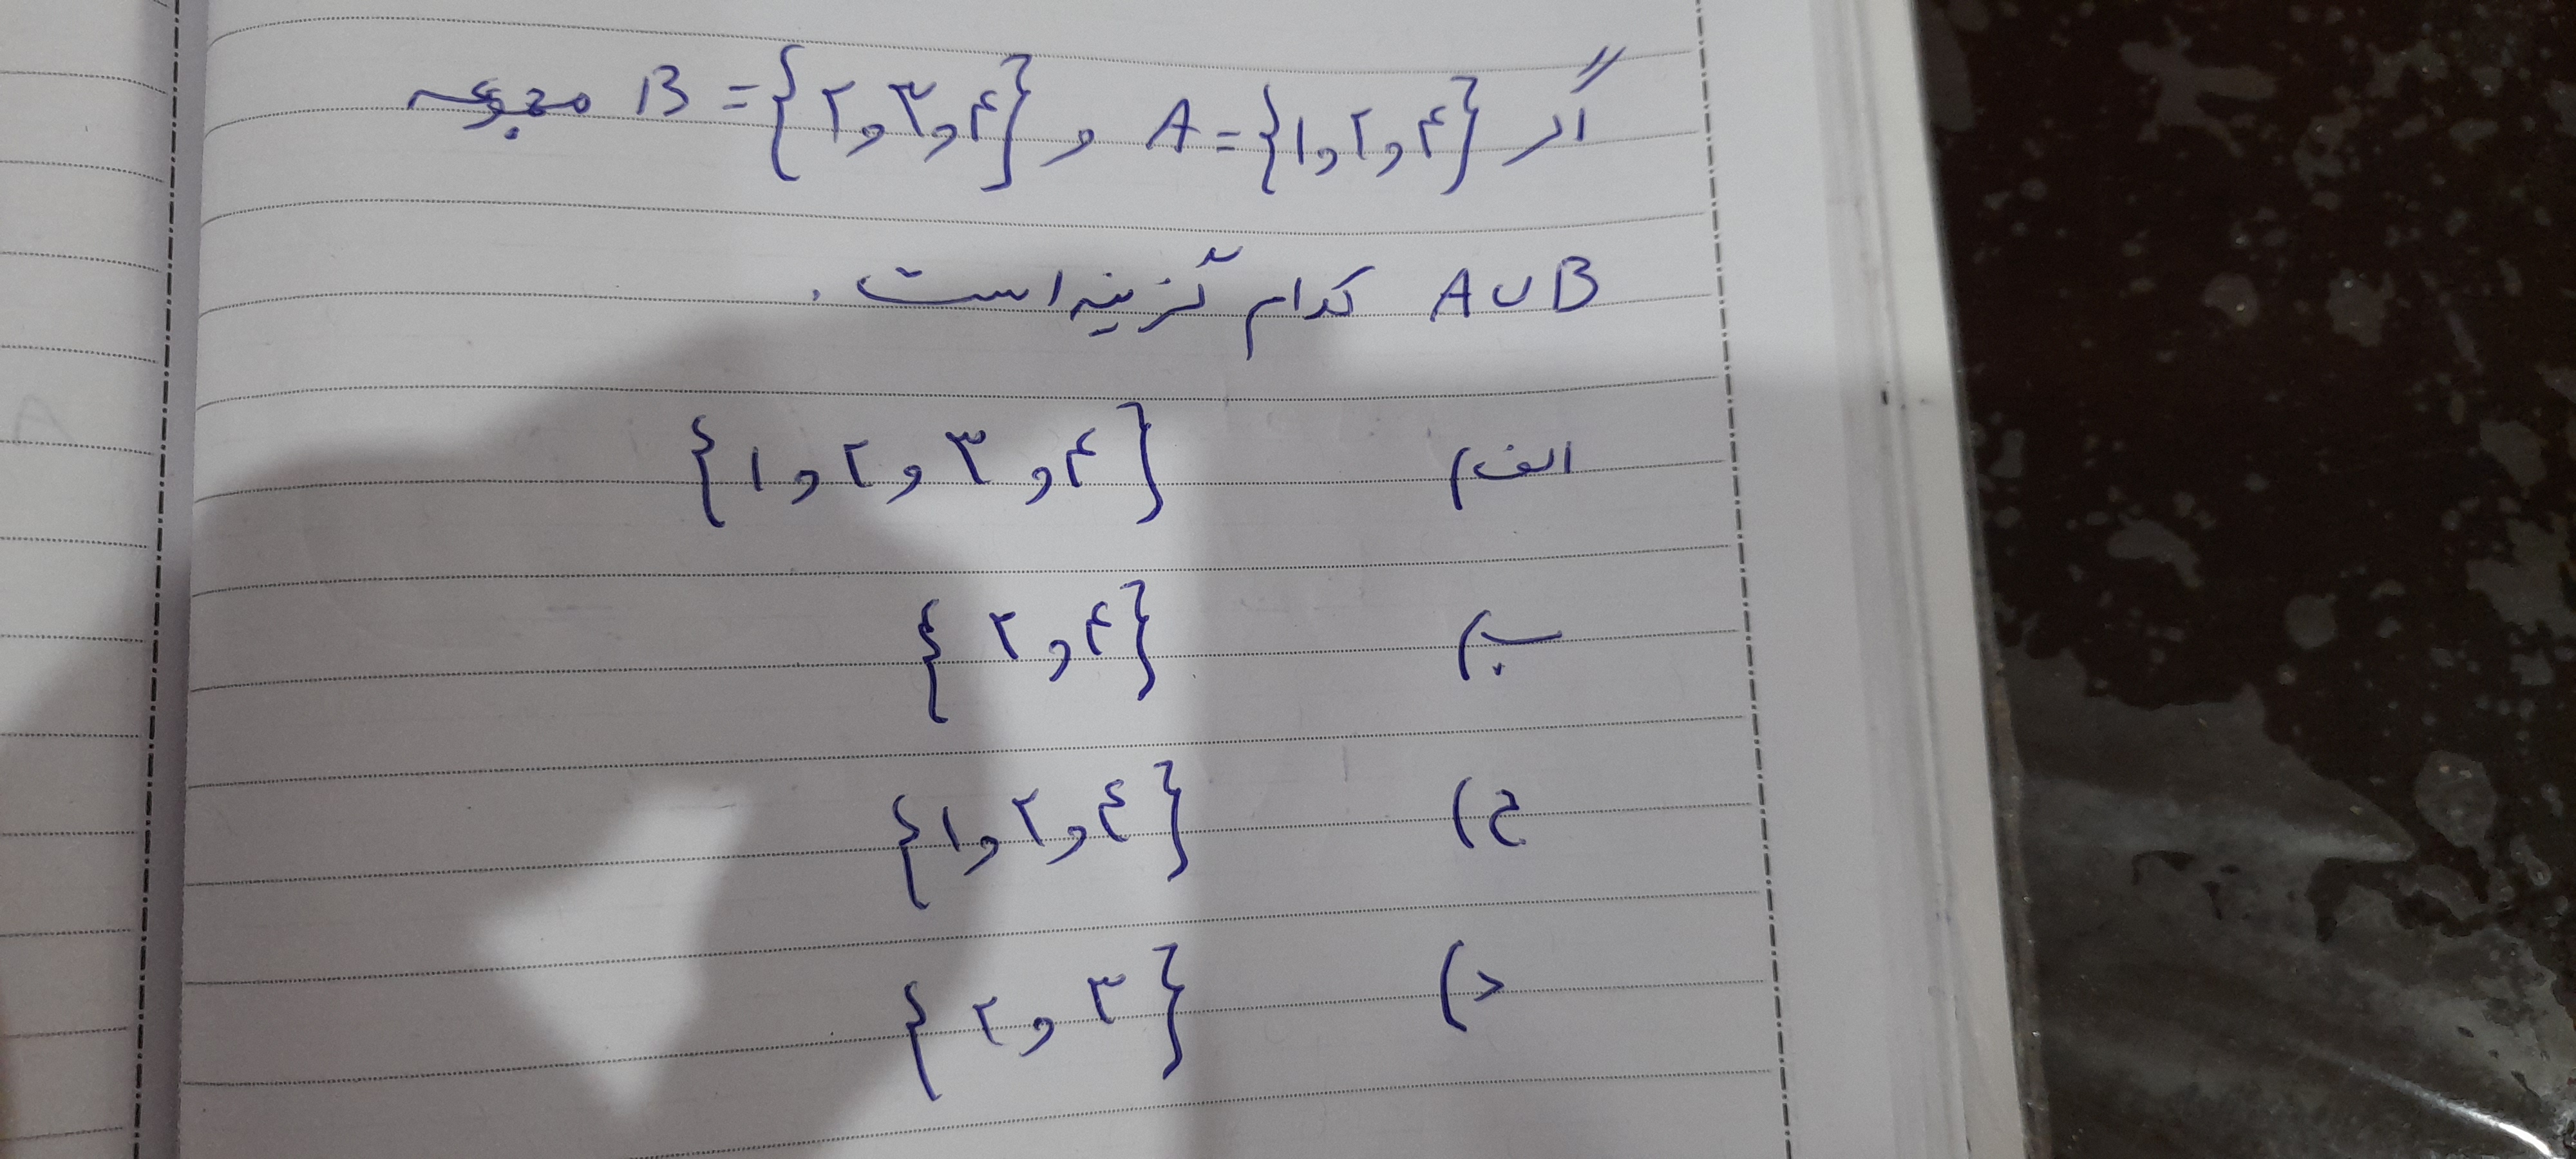 اگر A={۱,۲,۴} و B={۲,۳,۴} مجموعه
A∪B کدام گزینه است.
الف) {۱,۲,۳,۴}
ب) {۲,۴}
ج) {۱,۲,۴}
د) {۲,۳}